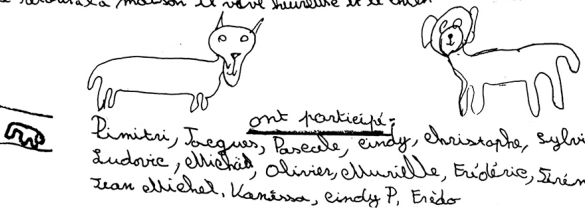 maison
ont participé:
Dimitri, Jacques, Pascale, Cindy, Christophe, Sylvi
Ludovic, Michël, Olivier, Murielle, Frédéric, Jérém
Jean Michel, Vanessa, Cindy P, Frédo